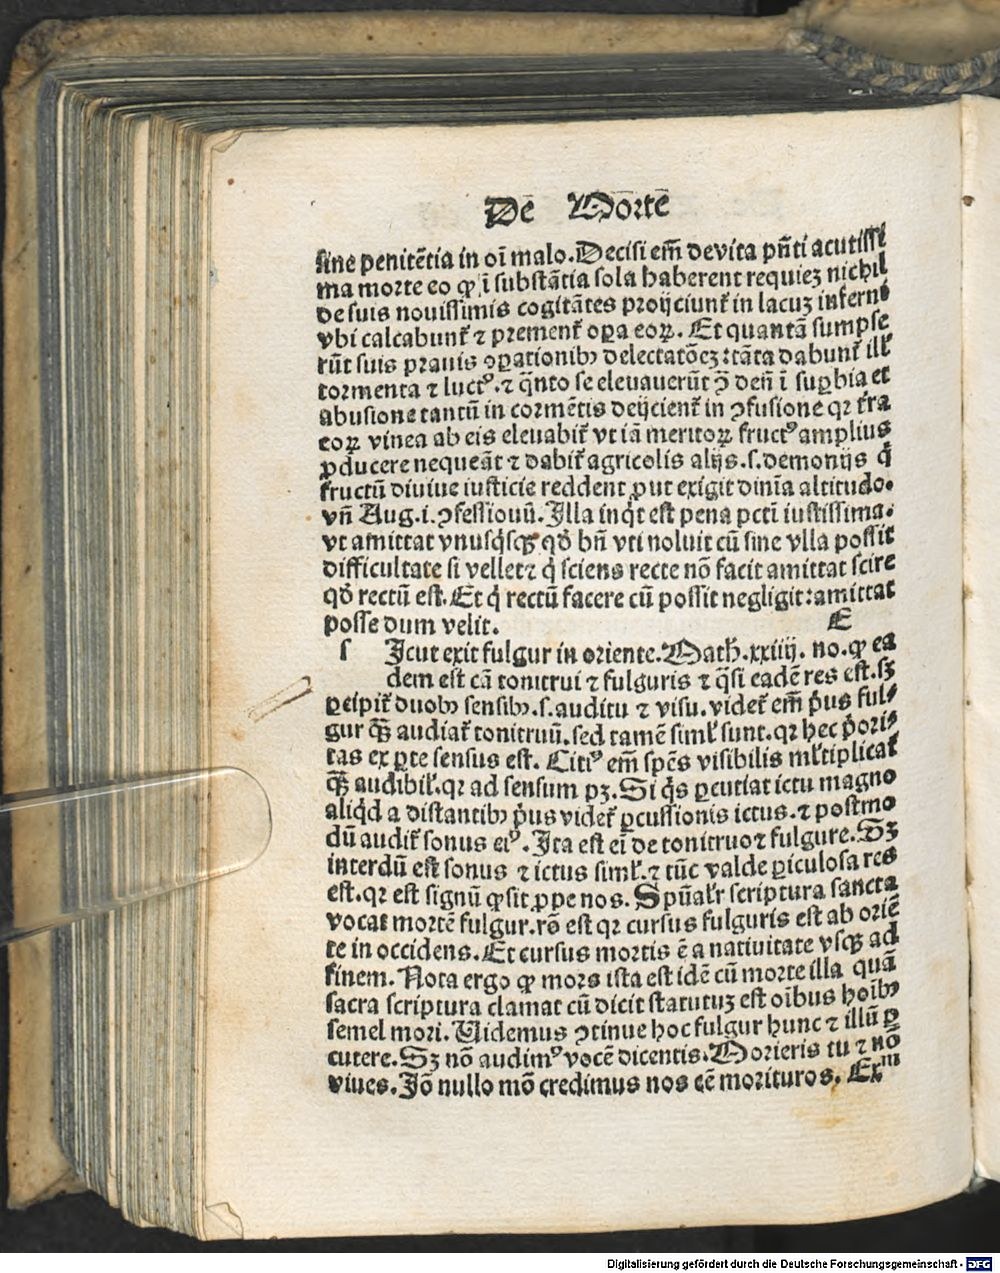 De Morte
sine penitẽtia in oĩ malo. Decisi em̃ de vita pñti acutissi
ma morte eo ꝙ ĩ substãtia sola haberent requiez nichil
de suis nouissimis cogitãtes proijciunt᷑ in lacuz inferni
vbi calcabunt᷑ ⁊ prement᷑ oꝑa eoꝝ. Et quantã sumpse
rũt suis prauis oꝑationibꝰ delectatõez: tãta dabunt᷑ ill᷑
tormenta ⁊ luctꝰ. ⁊ q̃nto se eleuauerũt ↄ̃ deũ ĩ suꝑbia et
abusione tantũ in tormẽtis deijcient᷑ in ↄfusione qr t᷑ra
eoꝝ vinea ab eis eleuabit᷑ vt iã meritoꝝ fructꝰ amplius
ꝓducere nequeãt ⁊ dabit᷑ agricolis alijs .s. demonijs q̇
fructũ diuiue iusticie reddent ꝓut exigit diuĩa altitudo.
vñ Aug. i. ↄfessiouũ. Illa inq̇t est pena pctĩ iustissima.
vt amittat vnusq̇sqꝫ qd̓ bñ vti noluit cũ sine vlla possit
difficultate si vellet ⁊ q̇ sciens recte nõ facit amittat scire
qd̓ rectũ est. Et q̇ rectũ facere cũ possit negligit: amittat
posse dum velit. E
s Icut exit fulgur in oriente. Math̓. xxiiij. no. ꝙ ea
dem est cã tonitrui ⁊ fulguris ⁊ q̃si eadẽ res est. sꝫ
ꝑcipit᷑ duobꝰ sensibꝰ .s. auditu ⁊ visu. videt᷑ em̃ p̓us ful-
gur qꝫ̃ audiat᷑ tonitruũ. sed tamẽ siml᷑ sunt. qr hec p̓ori-
tas ex ꝑte sensus est. Citiꝰ em̃ spẽs visibilis ml᷑tiplicat᷑
qꝫ̃ audibil᷑. qr ad sensum pꝫ. Si q̇s ꝑcutiat ictu magno
aliq̇d a distantibꝰ p̓us videt᷑ ꝑcussionis ictus. ⁊ postmo
dũ audit᷑ sonus eiꝰ. Ita est eĩ de tonitruo ⁊ fulgure. Sꝫ
interdũ est sonus ⁊ ictus siml᷑. ⁊ tũc valde ꝑiculosa res
est. qr est signũ ꝙ sit ꝓpe nos. Spũal᷑r scriptura sancta
vocat mortẽ fulgur. rõ est qr cursus fulguris est ab oriẽ
te in occidens. Et cursus mortis ẽ a natiuitate vsqꝫ ad
finem. Nota ergo ꝙ mors ista est idẽ cũ morte illa quã
sacra scriptura clamat cũ dicit statutuz est oĩbus hoĩbꝰ
semel mori. Uidemus ↄtinue hoc fulgur hunc ⁊ illũ ꝑ
cutere. Sꝫ nõ audimꝰ vocẽ dicentis. Morieris tu ⁊ nõ
viues. Iõ nullo mõ credimus nos eẽ morituros. Exᵐ
Digitalisierung gefördert durch die Deutsche Forschungsgemeinschaft - DFG